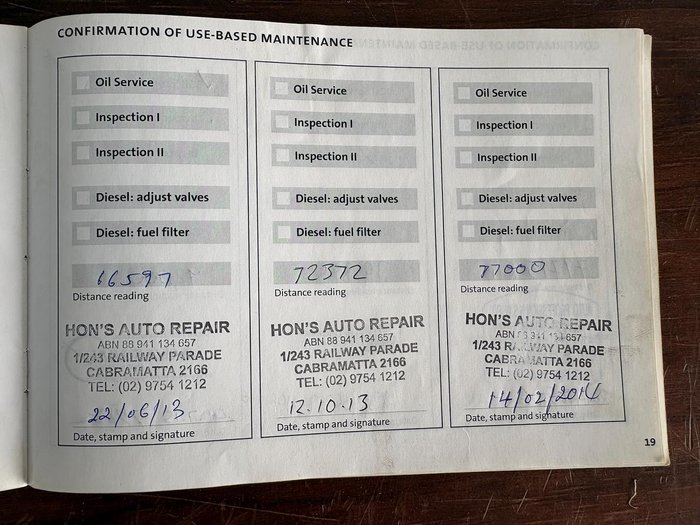 CONFIRMATION OF USE-BASED MAINTENANCE
Oil Service
Inspection I
Inspection II
Diesel: adjust valves
Diesel: fuel filter
66597
Distance reading
HON'S AUTO REPAIR
ABN 88 941 134 657
1/243 RAILWAY PARADE
CABRAMATTA 2166
TEL: (02) 9754 1212
22/06/13
Date, stamp and signature
Oil Service
Inspection I
Inspection II
Diesel: adjust valves
Diesel: fuel filter
72372
Distance reading
HON'S AUTO REPAIR
ABN 88 941 134 657
1/243 RAILWAY PARADE
CABRAMATTA 2166
TEL: (02) 9754 1212
12.10.13
Date, stamp and signature
Oil Service
Inspection I
Inspection II
Diesel: adjust valves
Diesel: fuel filter
77000
Distance reading
HON'S AUTO REPAIR
ABN 88 941 134 657
1/243 RAILWAY PARADE
CABRAMATTA 2166
TEL: (02) 9754 1212
14/02/2014
Date, stamp and signature
19